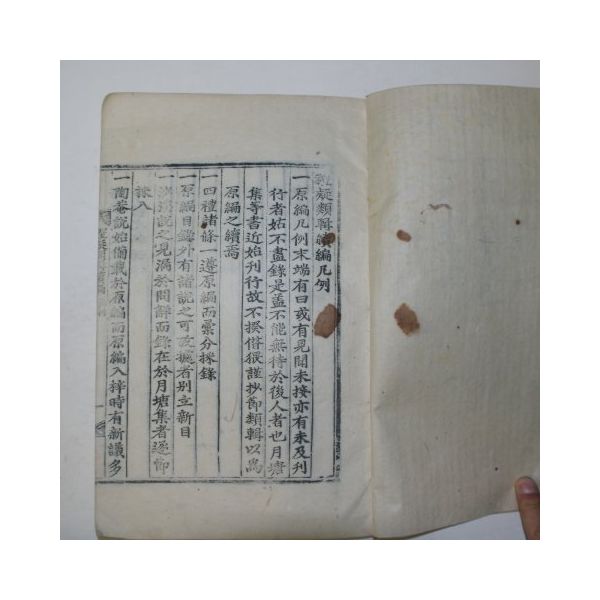 禮疑類輯續編凡例
一原編凡例末端有曰或有見聞未接亦有未及刊
行者姑不盡錄是盖不能無待於後人者也月塘
集等書近始刊行故不揆俗猥謹抄節類輯以為
原編之續焉
一四種諸條一遵原編而彙分採錄
一原編目錄外有諸說之可攷據者別立新目
說之見漏於問解而錄在於月塘集者逐卽
一陶菴說始備載於原編而原編入梓時有新議多